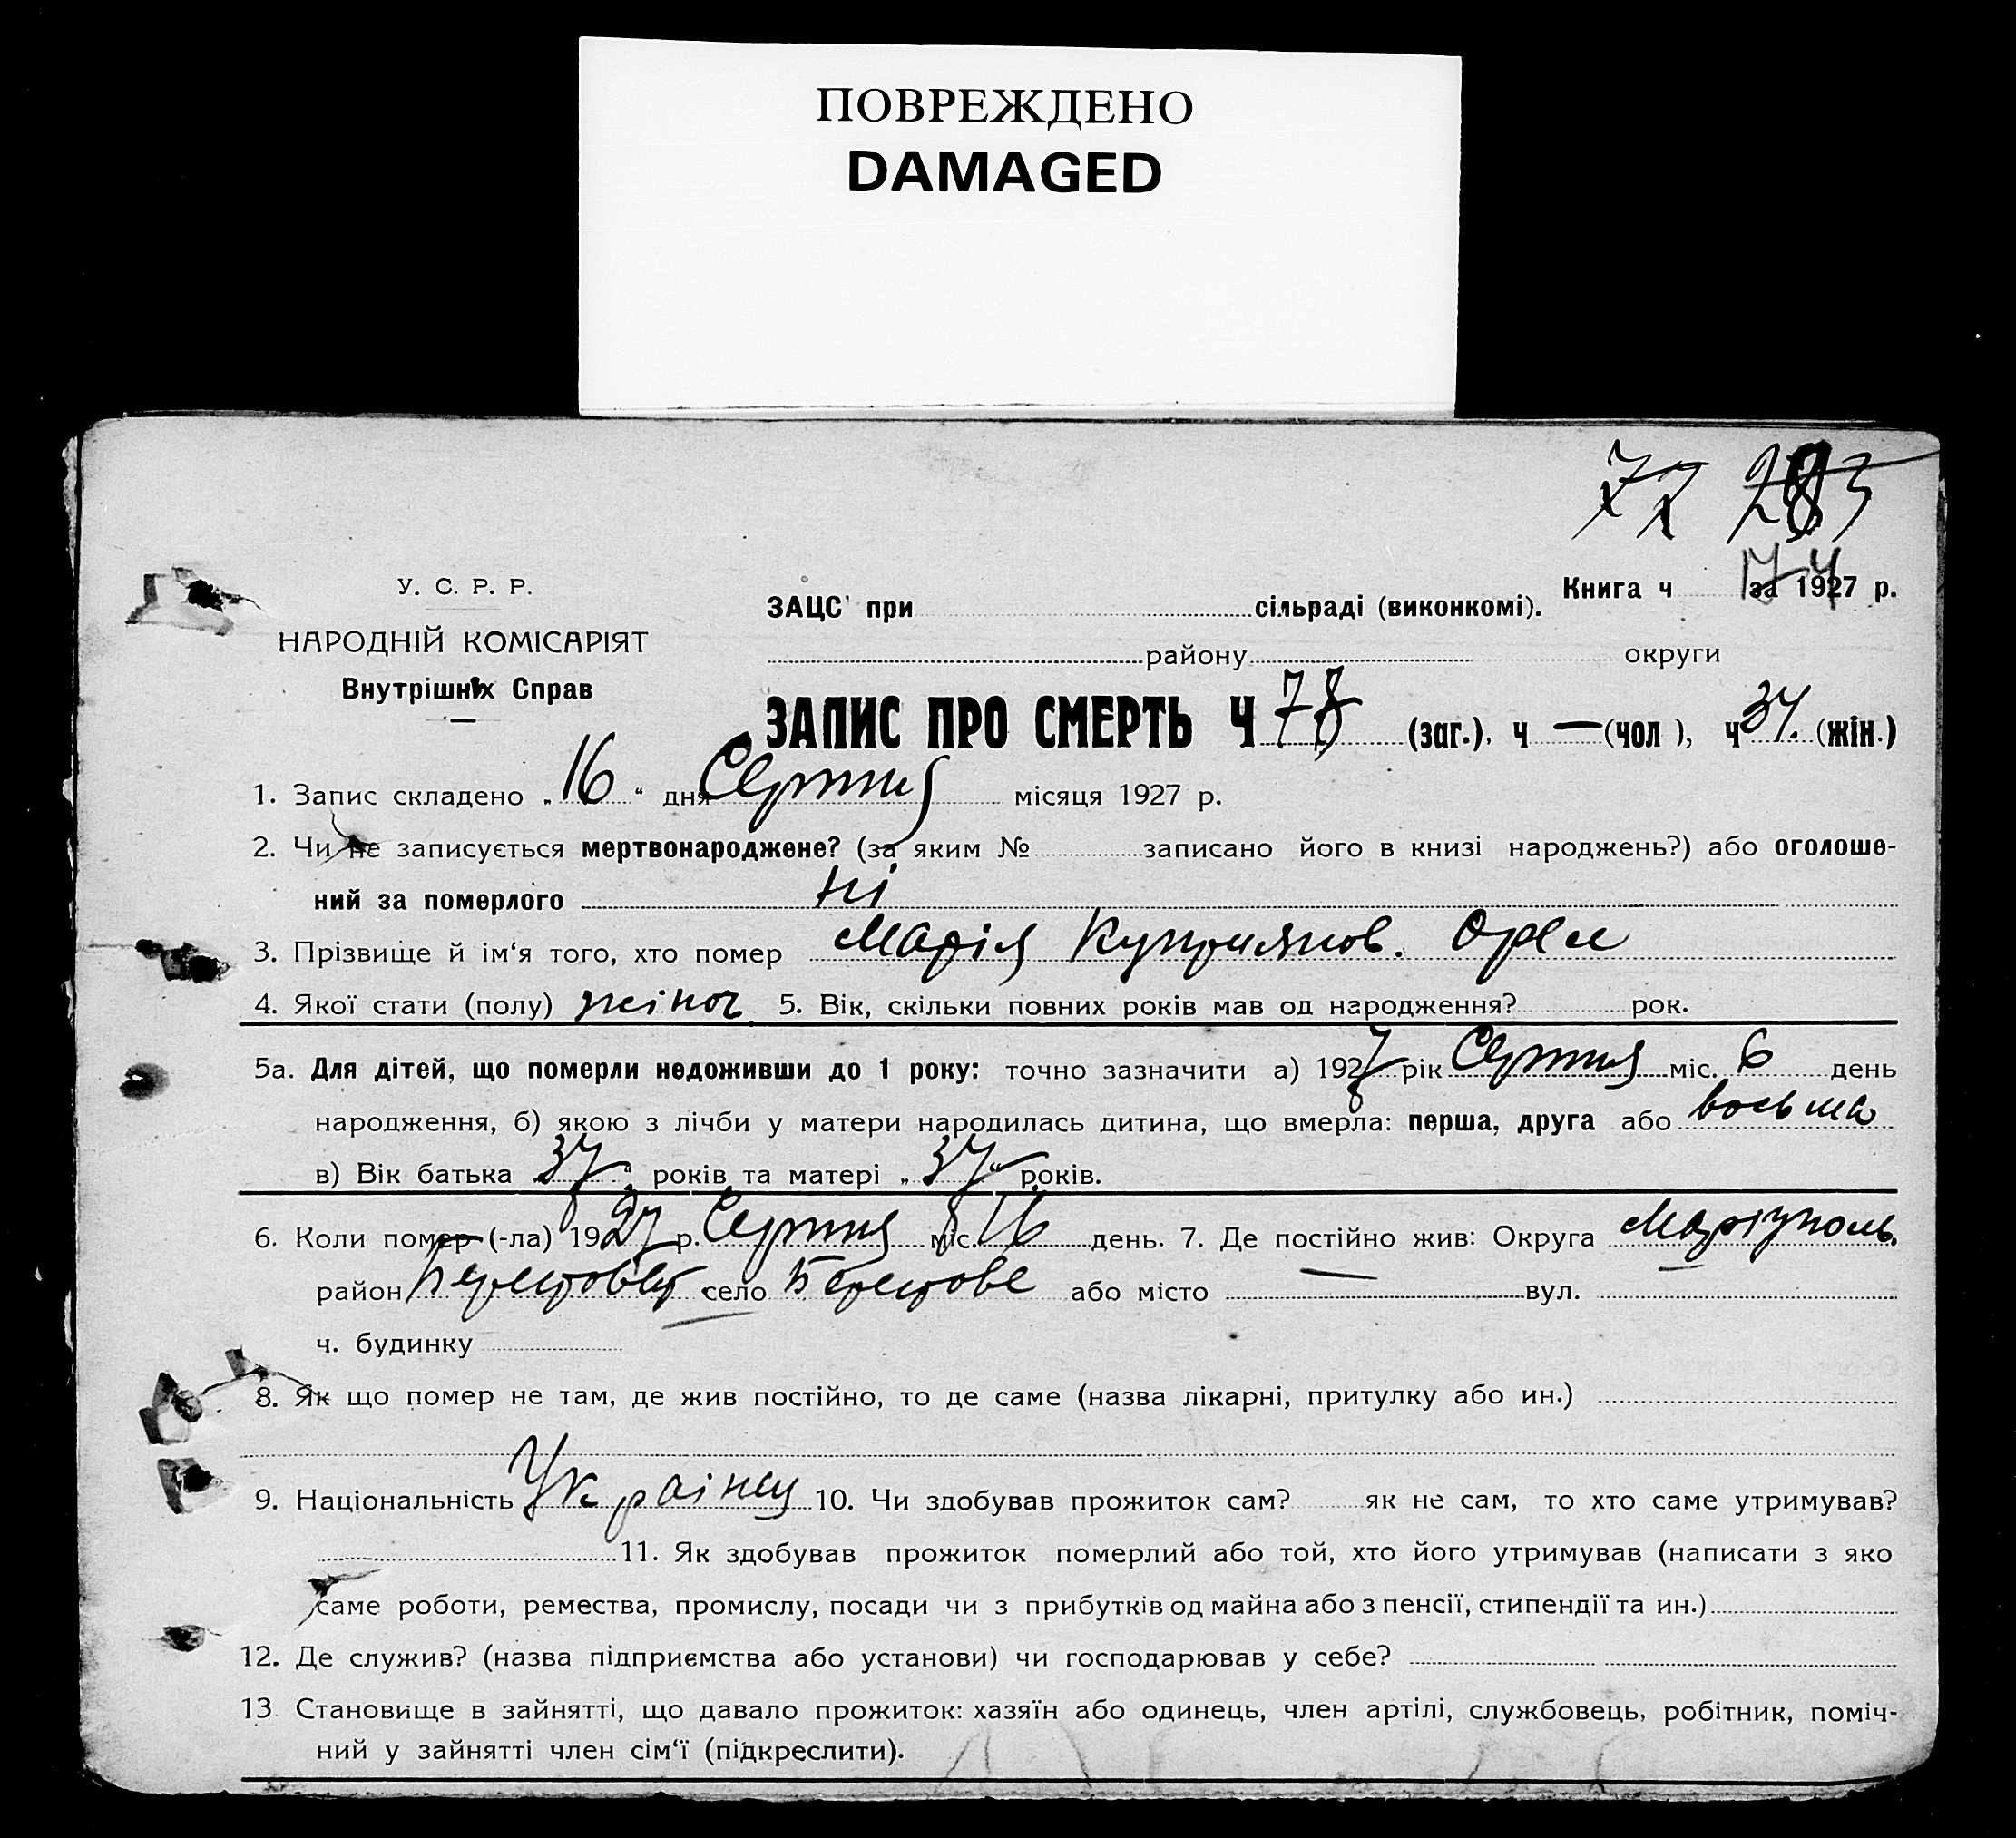 ПОВРЕЖДЕНО
DAMAGED
72 283
174
У. С. Р. Р.
НАРОДНІЙ КОМІСАРІЯТ
Внутрішніх Справ
Книга ч за 1927 р.
ЗАЦС' при сільраді (виконкомі).
району округи
ЗАПИС ПРО СМЕРТЬ Ч 78 (заг.), ч — (чол ), ч 34. (жін.)
1. Запис складено „ 16 “ дня Серпня місяця 1927 р.
2. Чи не записується мертвонароджене? (за яким № записано його в книзі народжень?) або оголоше-
ний за померлого ні
3. Прізвище й ім‘я того, хто помер Марія Куприянов. Орел
4. Якої стати (полу) жіноч. 5. Вік, скільки повних років мав од народження? рок.
5а. Для дітей, що померли недоживши до 1 року: точно зазначити а) 1927 рік Серпня міс. 6 день
народження, б) якою з лічби у матери народилась дитина, що вмерла: перша, друга або восьма
в) Вік батька „ 37 “ років та матері „ 37 “ років.
6. Коли помер (-ла) 1927 р. Серпня міс. 16 день. 7. Де постійно жив: Округа Маріуполь.
район Берестовський село Берестове або місто — вул.
ч. будинку
8. Як що помер не там, де жив постійно, то де саме (назва лікарні, притулку або ин.)
9. Національність Українц 10. Чи здобував прожиток сам? як не сам, то хто саме утримував?
11. Як здобував прожиток померлий або той, хто його утримував (написати з яко
саме роботи, ремества, промислу, посади чи з прибутків од майна або з пенсії, стипендії та ин.)
12. Де служив? (назва підприємства або установи) чи господарював у себе?
13. Становище в зайнятті, що давало прожиток: хазяїн або одинець, член артілі, службовець, робітник, поміч-
ний у зайнятті член сім‘ї (підкреслити).